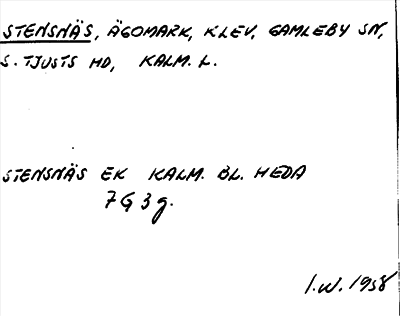 STENSNÄS, ÄGOMARK, KLEV, GAMLEBY SN,
S. TJUSTS HD, KALM. L.
STENSNÄS EK KALM. BL. HEDA
7G3g.
I.W. 1958